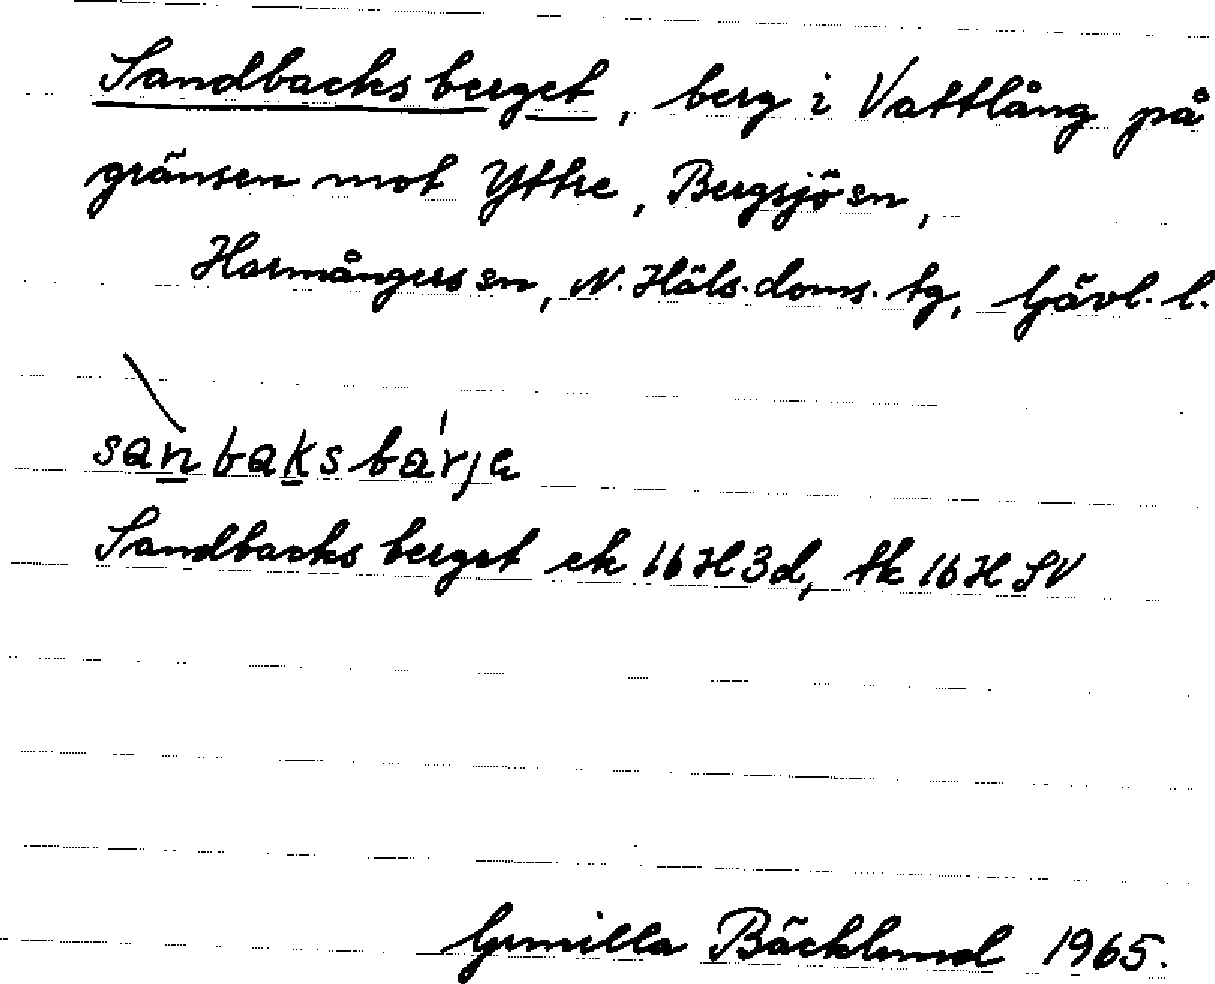 Sandbacksberget, berg i Vattlång på
gränsen mot Yttre, Bergsjö sn,
Harmångers sn, N. Häls. doms. tg, Gävl. l.
sanbaksbarja
Sandbacksberget ek 16H3d, tk 16H SV
Gunilla Bäcklund 1965.